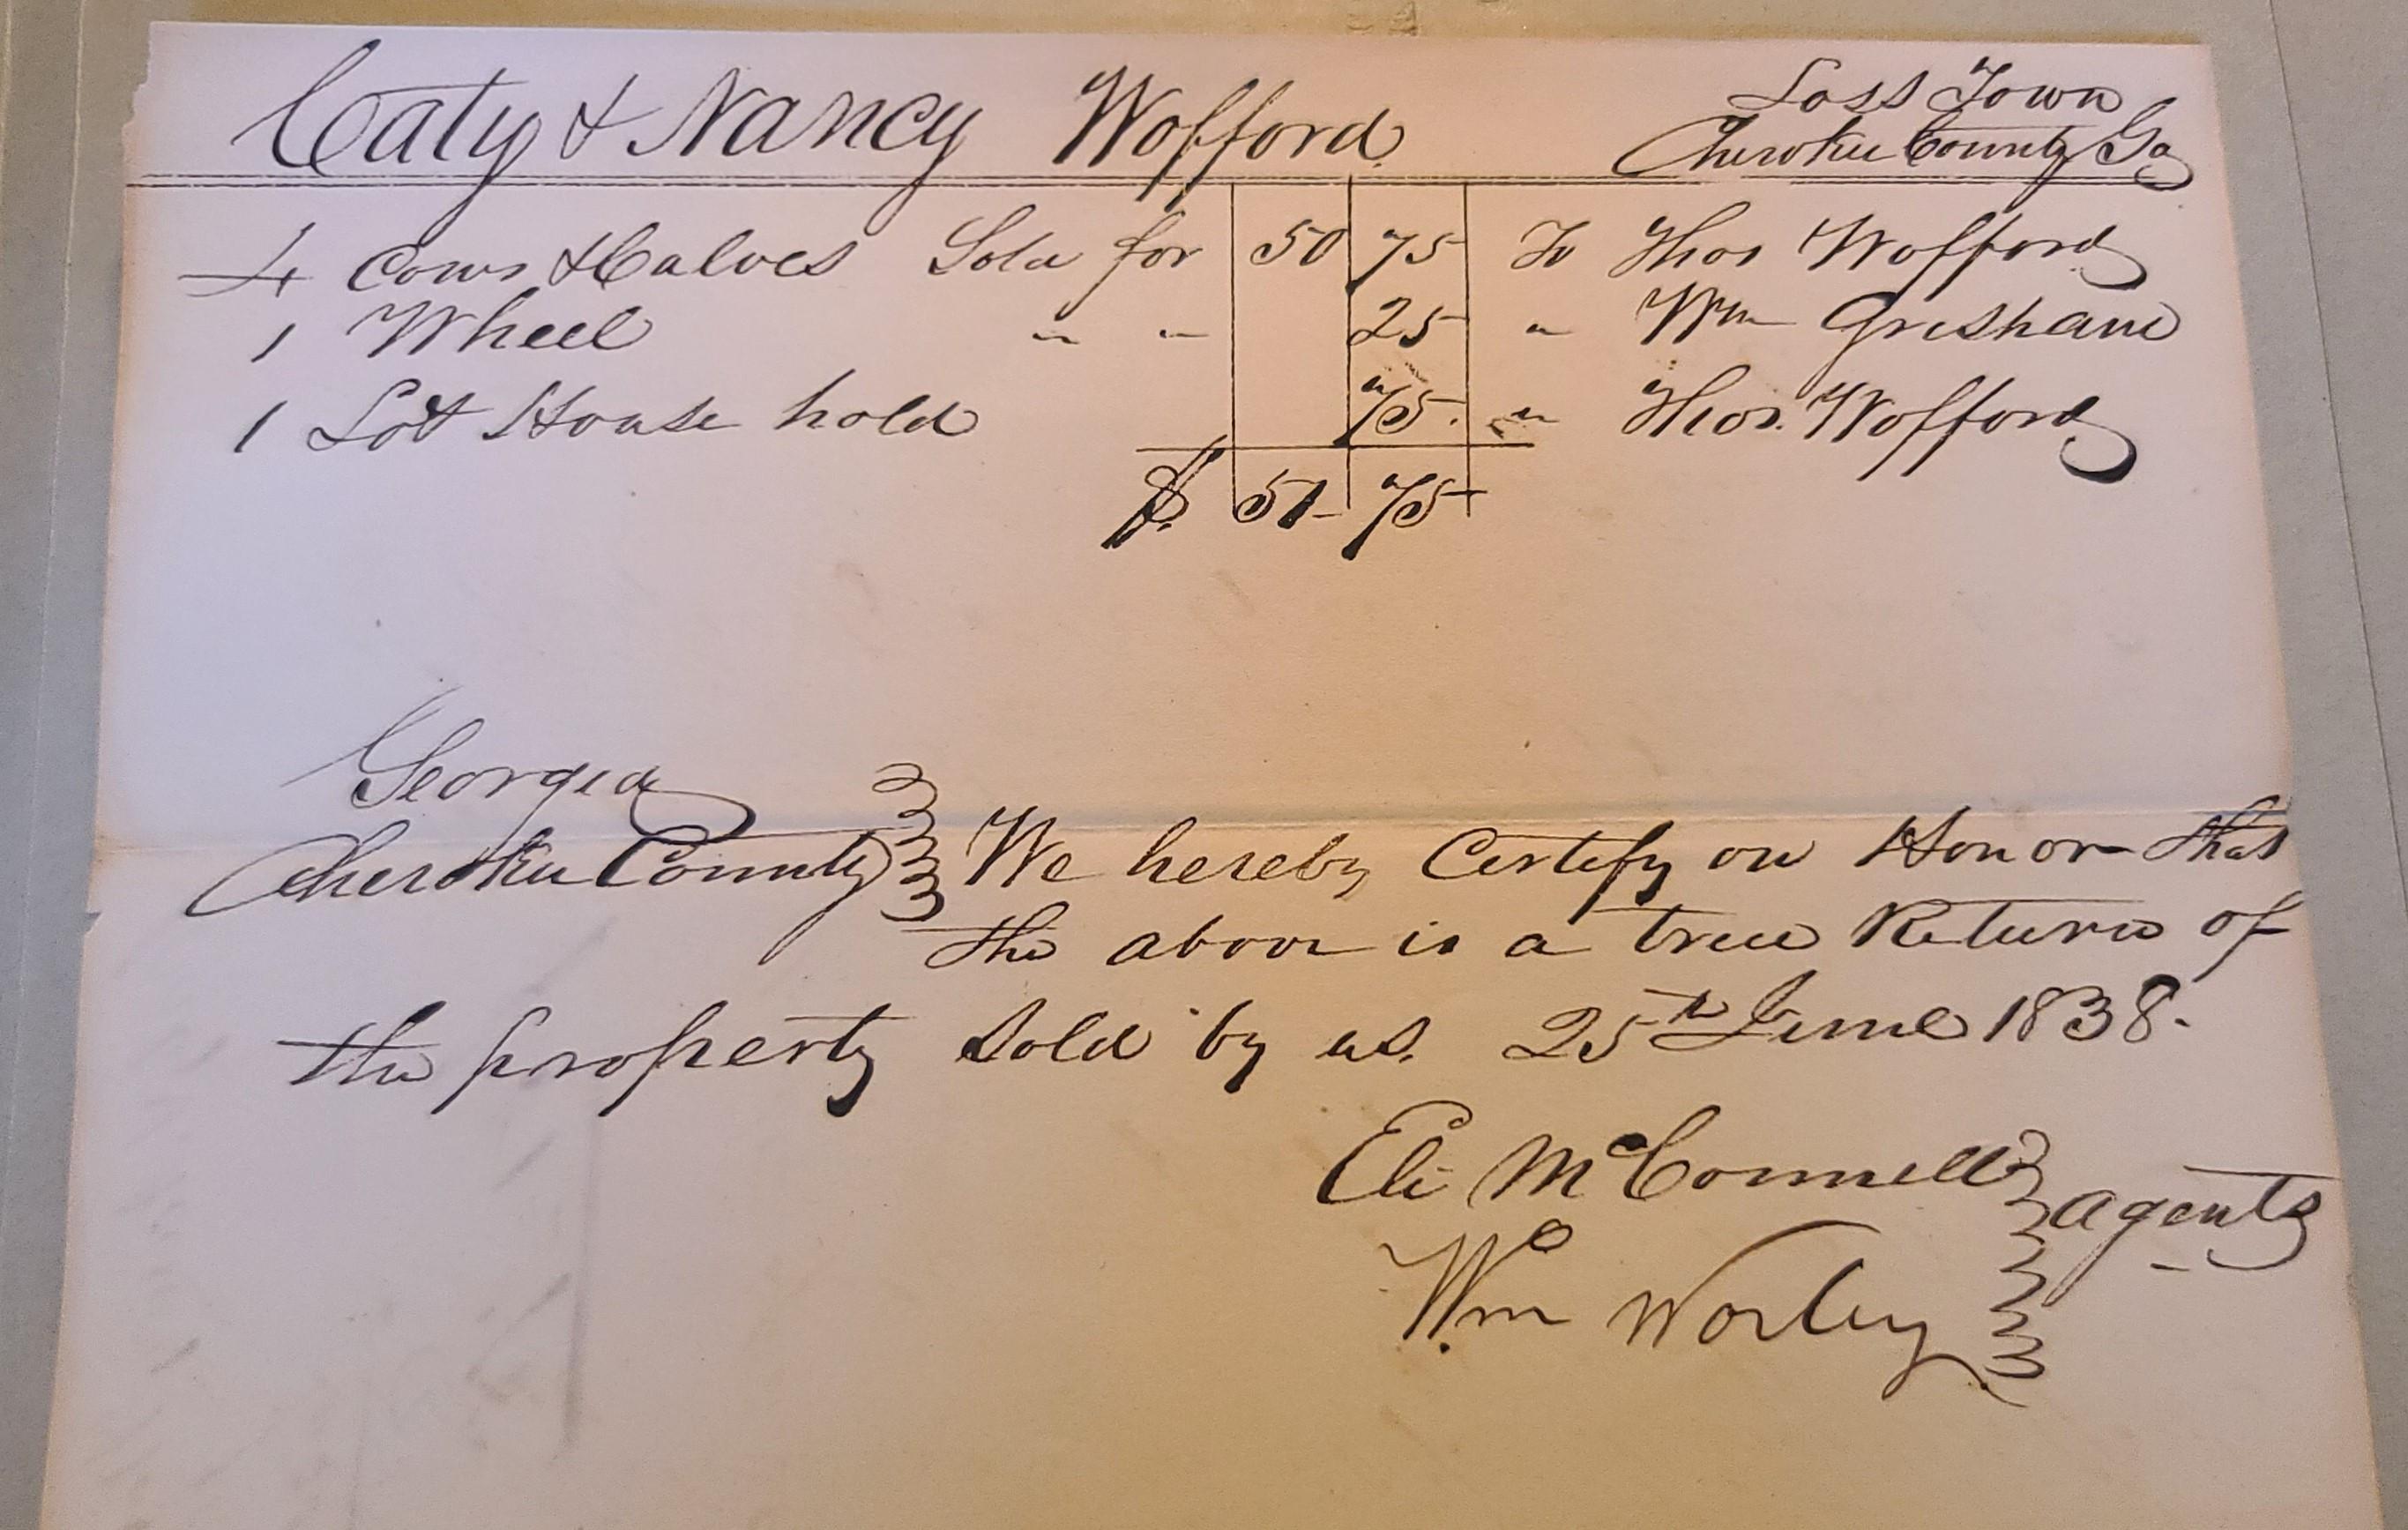 Caty & Nancy Wofford. Loss Town
Cherokee County Ga
4 Cows & Calves Sold for 50 75 To Thos Wofford
1 Wheel " " 25 " Wm Grisham
1 Lot House hold 75. " Thos. Wofford
$. 51 75
Georgia
Cherokee County We hereby Certify on Honor that
the above is a true Return of
the property Sold by us. 25th June 1838.
Eli McConnell
agents
Wm Worley